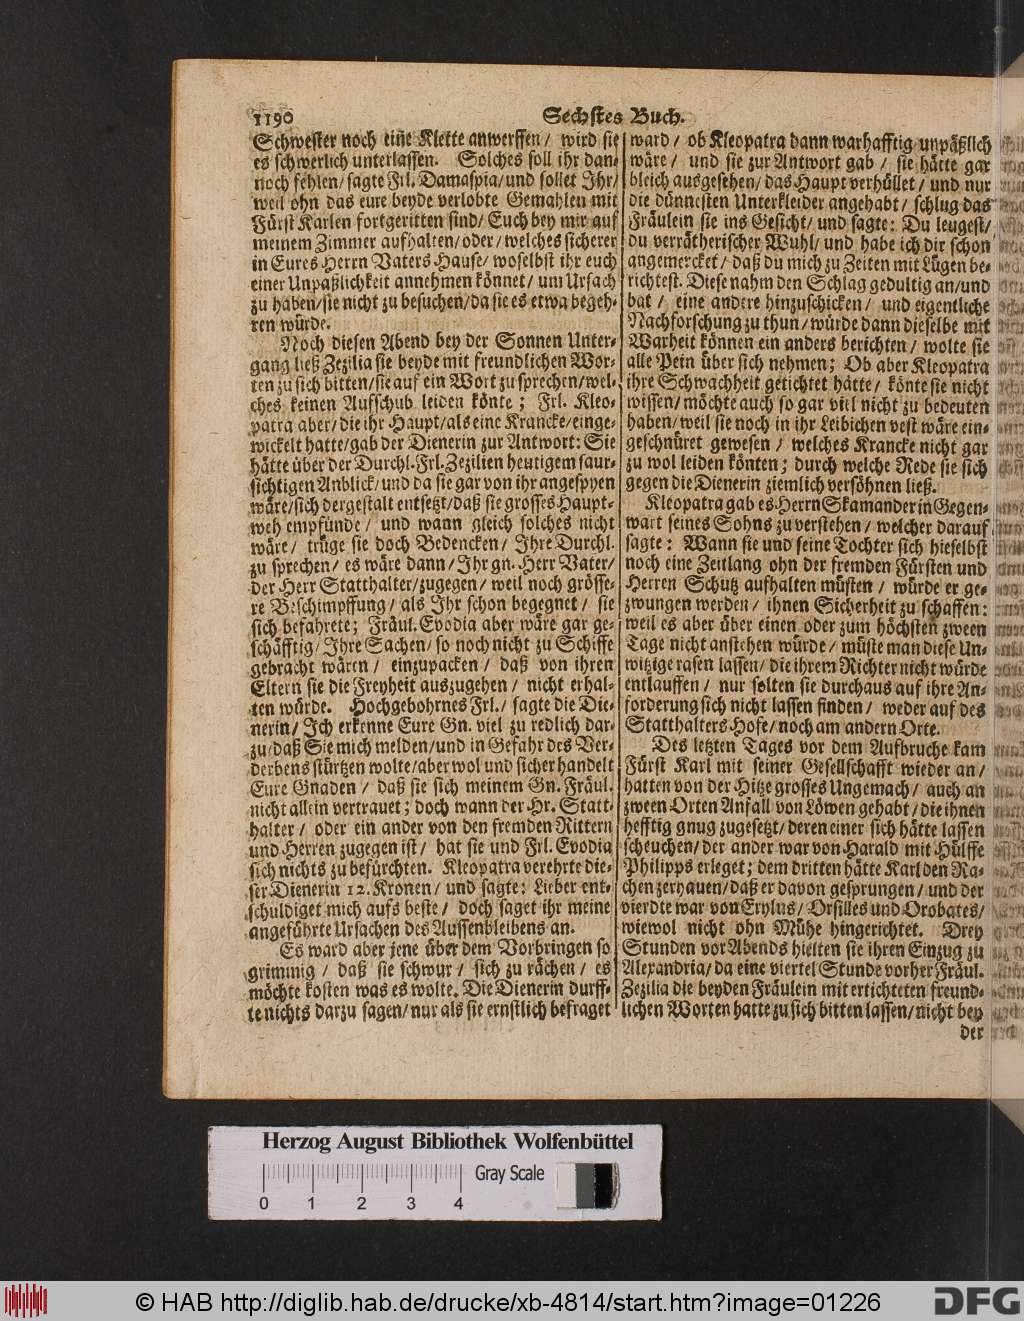 1190
Sechstes Buch.
Schwester noch eiñe Klette anwerffen / wird sie
es schwerlich unterlassen. Solches soll ihr dan-
noch fehlen / sagte Frl. Damaspia / und sollet Ihr /
weil ohn das eure beyde verlobte Gemahlen mit
Fürst Karlen fortgeritten sind / Euch bey mir auf
meinem Zimmer aufhalten / oder / welches sicherer
in Eures Herrn Vaters Hause / woselbst ihr euch
einer Unpäßlichkeit annehmen könnet / um Ursach
zu haben / sie nicht zu besuchen / da sie es etwa begeh-
ren würde.
Noch diesen Abend bey der Sonnen Unter-
gang ließ Zezilia sie beyde mit freundlichen Wor-
ten zu sich bitten / sie auf ein Wort zu sprechen / wel-
ches keinen Aufschub leiden könte ; Frl. Kleo-
patra aber / die ihr Haupt / als eine Krancke / einge-
wickelt hatte / gab der Dienerin zur Antwort: Sie
hätte über der Durchl. Frl. Zezilien heutigem saur-
sichtigen Anblick / und da sie gar von ihr angespyen
wäre / sich dergestalt entsetzt / daß sie grosses Haupt-
weh empfünde / und wann gleich solches nicht
wäre / trüge sie doch Bedencken / Ihre Durchl.
zu sprechen / es wäre dann / Ihr gn. Herr Vater /
der Herr Statthalter / zugegen / weil noch grösse-
re Beschimpffung / als Ihr schon begegnet / sie
sich befahrete; Fräul. Evodia aber wäre gar ge-
schäfftig / Ihre Sachen / so noch nicht zu Schiffe
gebracht wären / einzupacken / daß von ihren
Eltern sie die Freyheit auszugehen / nicht erhal-
ten würde. Hochgebohrnes Frl. / sagte die Die-
nerin / Ich erkenne Eure Gn. viel zu redlich dar-
zu / daß Sie mich melden / und in Gefahr des Ver-
derbens stürtzen wolte / aber wol und sicher handelt
Eure Gnaden / daß sie sich meinem Gn. Fräul.
nicht allein vertrauet; doch wann der Hr. Statt-
halter / oder ein ander von den fremden Rittern
und Herren zugegen ist / hat sie und Frl. Evodia
sich nichts zu befürchten. Kleopatra verehrte die-
ser Dienerin 12. Kronen / und sagte: Lieber ent-
schuldiget mich aufs beste / doch saget ihr meine
angeführte Ursachen des Aussenbleibens an.
Es ward aber jene über dem Vorbringen so
grimmig / daß sie schwur / sich zu rächen / es
möchte kosten was es wolte. Die Dienerin durff-
te nichts darzu sagen / nur als sie ernstlich befraget
ward / ob Kleopatra dann warhafftig unpäßlich
wäre / und sie zur Antwort gab / sie hätte gar
bleich ausgesehen / das Haupt verhüllet / und nur
die dünnesten Unterkleider angehabt / schlug das
Fräulein sie ins Gesicht / und sagte: Du leugest /
du verrätherischer Wuhl / und habe ich dir schon
angemercket / daß du mich zu Zeiten mit Lügen be-
richtest. Diese nahm den Schlag gedultig an / und
bat / eine andere hinzuschicken / und eigentliche
Nachforschung zu thun / würde dann dieselbe mit
Warheit können ein anders berichten / wolte sie
alle Pein über sich nehmen; Ob aber Kleopatra
ihre Schwachheit getichtet hätte / könte sie nicht
wissen / möchte auch so gar viel nicht zu bedeuten
haben / weil sie noch in ihr Leibichen vest wäre ein-
geschnüret gewesen / welches Krancke nicht gar
zu wol leiden könten; durch welche Rede sie sich
gegen die Dienerin ziemlich versöhnen ließ.
Kleopatra gab es Herrn Skamander in Gegen-
wart seines Sohns zu verstehen / welcher darauf
sagte: Wann sie und seine Tochter sich hieselbst
noch eine Zeitlang ohn der fremden Fürsten und
Herren Schutz aufhalten müsten / würde er ge-
zwungen werden / ihnen Sicherheit zu schaffen:
weil es aber über einen oder zum höchsten zween
Tage nicht anstehen würde / müste man diese Un-
witzige rasen lassen / die ihrem Richter nicht würde
entlauffen / nur solten sie durchaus auf ihre An-
forderung sich nicht lassen finden / weder auf des
Statthalters Hofe / noch am andern Orte.
Des letzten Tages vor dem Aufbruche kam
Fürst Karl mit seiner Gesellschafft wieder an /
hatten von der Hitze grosses Ungemach / auch an
zween Orten Anfall von Löwen gehabt / die ihnen
hefftig gnug zugesetzt / deren einer sich hätte lassen
scheuchen / der ander war von Harald mit Hülffe
Philipps erleget; dem dritten hätte Karl den Ra-
chen zerhauen / daß er davon gesprungen / und der
vierdte war von Erylus / Orsilles und Orobates /
wiewol nicht ohn Mühe hingerichtet. Drey
Stunden vor Abends hielten sie ihren Einzug zu
Alexandria / da eine viertel Stunde vorher Fräul.
Zezilia die beyden Fräulein mit ertichteten freund-
lichen Worten hatte zu sich bitten lassen / nicht bey
der
Herzog August Bibliothek Wolfenbüttel
Gray Scale
0 1 2 3 4
© HAB http://diglib.hab.de/drucke/xb-4814/start.htm?image=01226
DFG